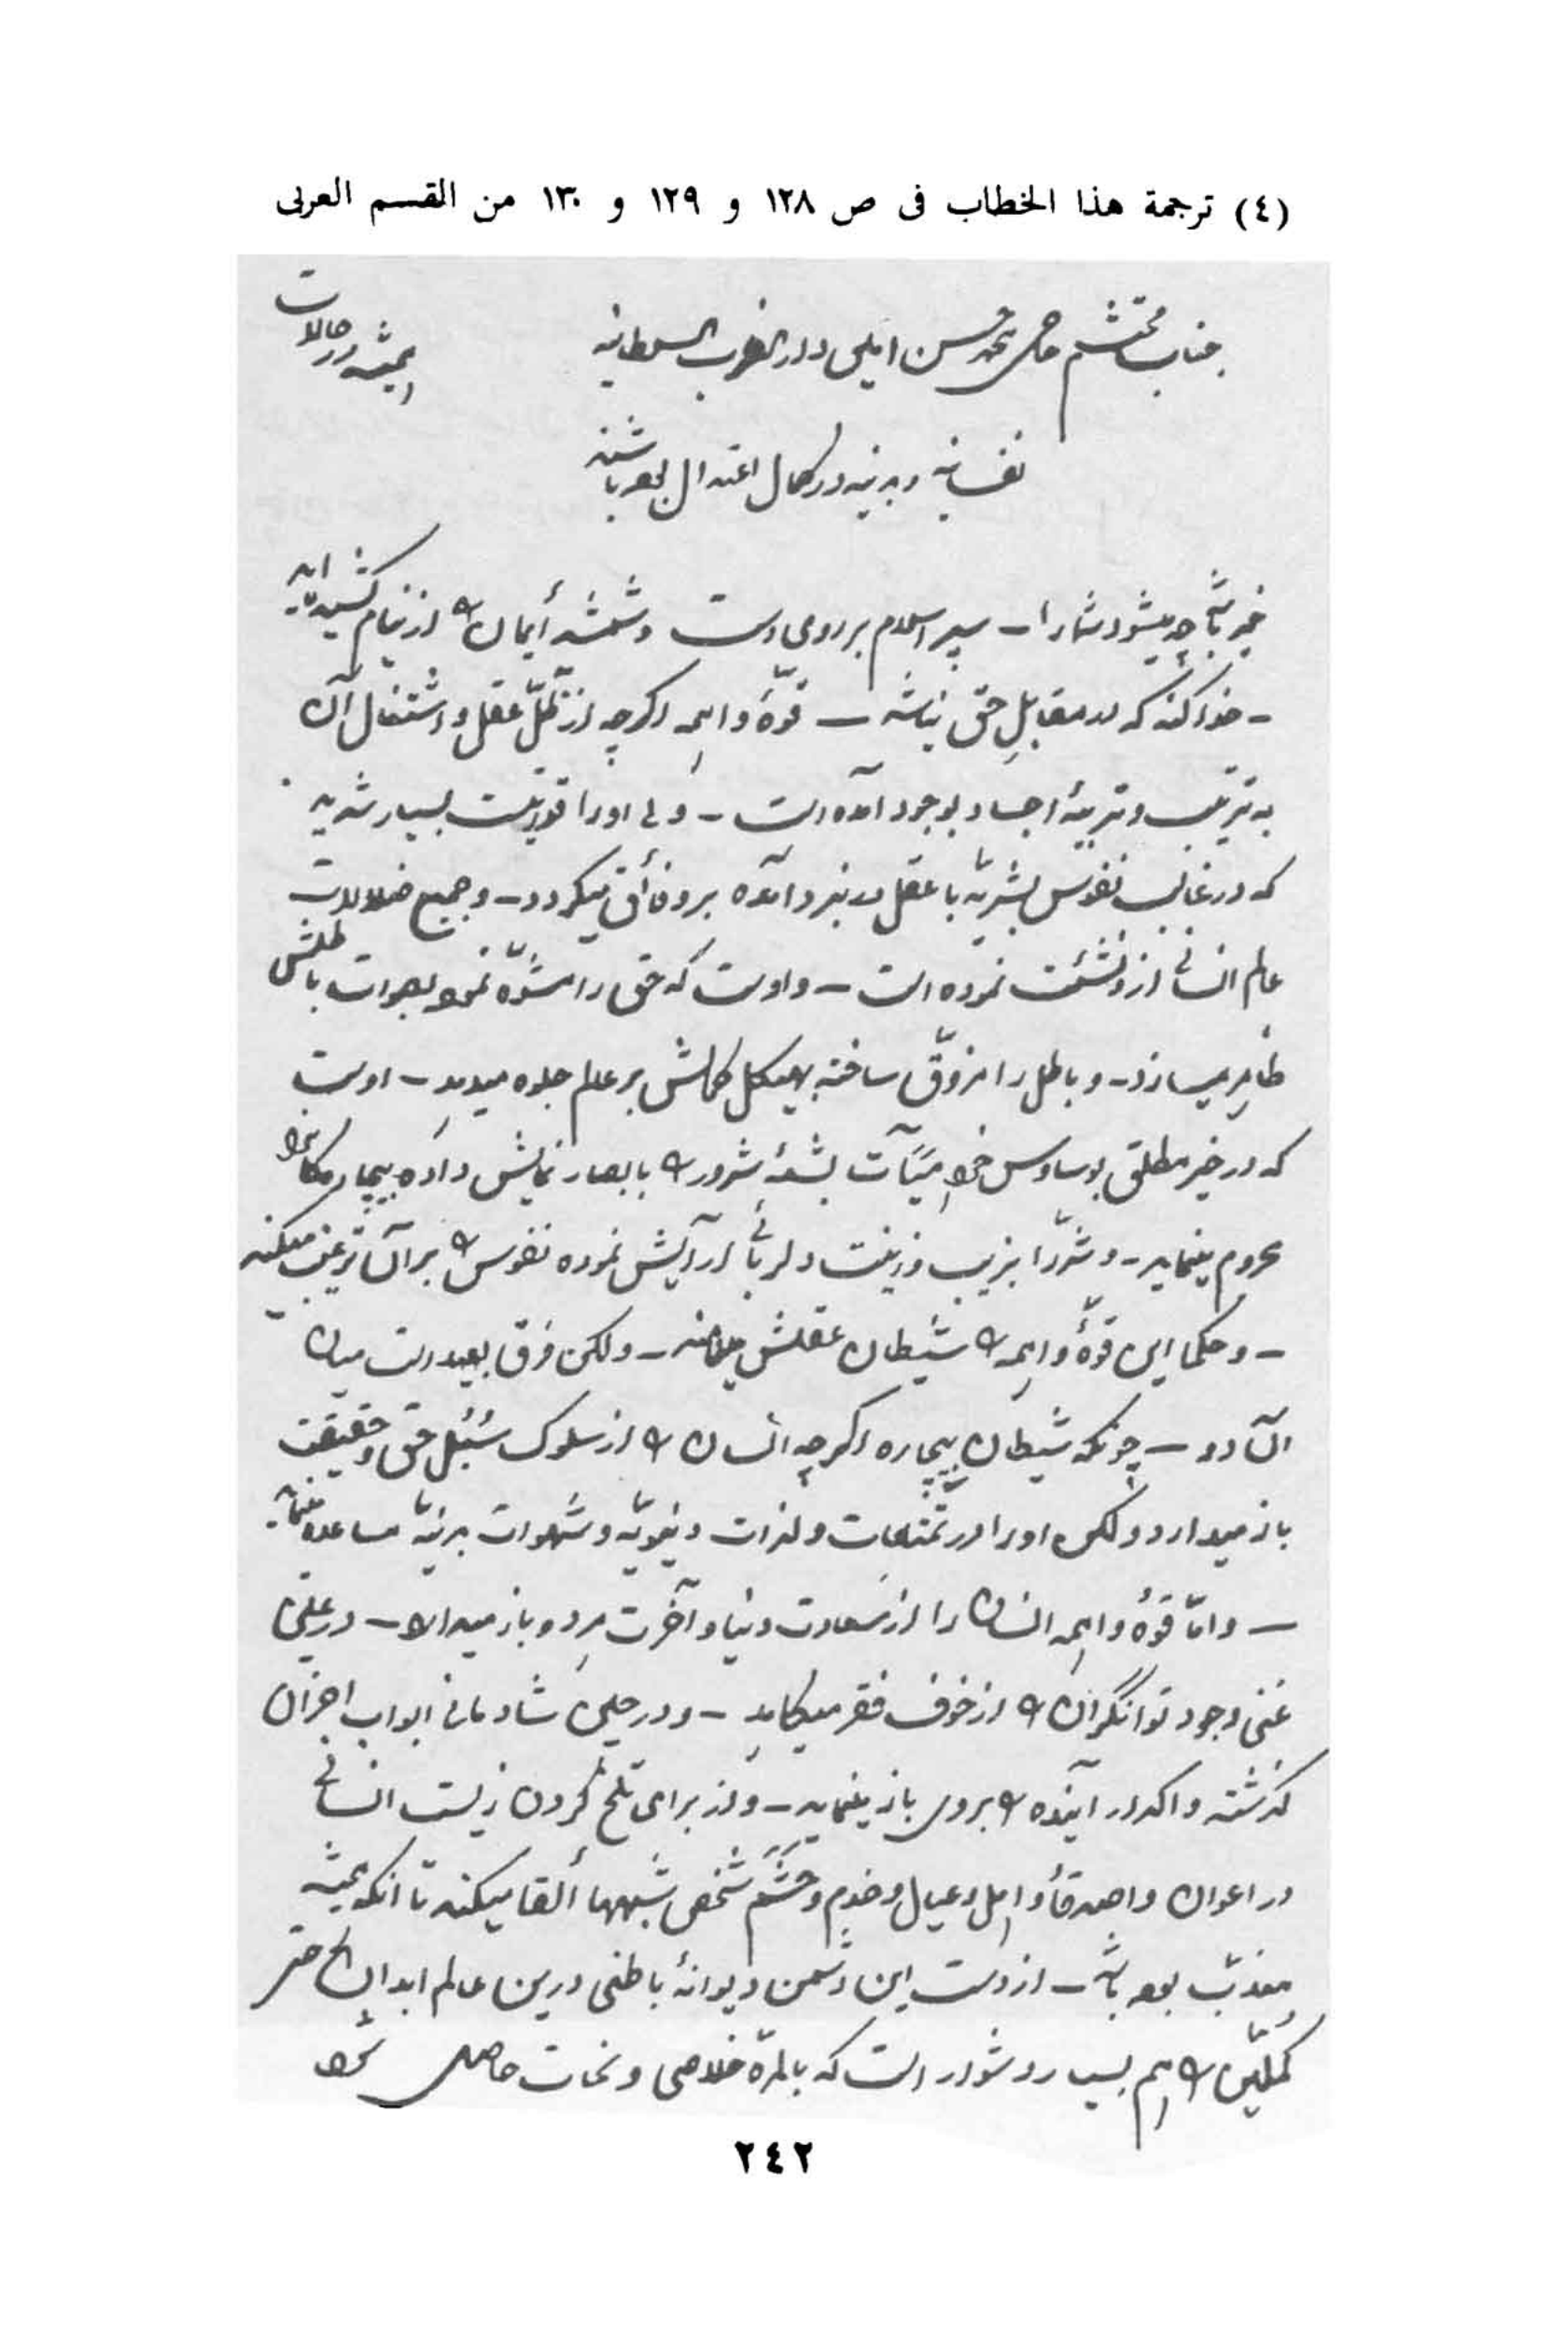 (٤) ترجمة هذا الخطاب فى ص ١٢٨ و ١٢٩ و ١٣٠ من القسم العربى
جناب محتشم حاجى محمد حسن امین دار الضرب السلطانیه همیشه در حالات
نفسانیه و بدنیه در کمال اعتدال بوده باشند
خیر باشد چه میشود شما را - سپر اسلام بر روی دست و شمشیر أیمان را از نیام کشیده اید
- خدا کند که در مقابلِ حق نباشد - قوّهٔ واهمه اگرچه از تظلّل عقل و اشتغال آن
به ترتیب و تربیهٔ اجساد بوجود آمده است - ولى او را قوتیست بسیار شدید
که در غالب نفوس بشریّه با عقل در نبرد آمده بر وى فأئق میگردد - و جمیع ضلالات
عالم انسانى از و نشئت نموده است - و اوست که حق را مشوّه نموده بصورت باطلش
ظاهر میسازد - و باطل را مزوّق ساخته بهیکل حقش بر عالم جلوه میدهد - اوست
که در خیر مطلق بوساوس خود هیئآت بشعهٔ شرور را بابصار نمایش داده بیچاره را
محروم مینماید - و شرّ را بزیب و زینت دلربائى آرایش نموده نفوس را بر آن ترغیب میکند
- و حکما این قوّهٔ واهمه را شیطان عقلش میخوانند - ولکن فرق بعید است میان
آن دو - چونکه شیطان بیچاره اگرچه انسان را از سلوک سُبُل حق و حقیقت
باز میدارد ولکن او را در تمتعات و لذات دنیویّه و شهوات بدنیّه مساعده مینماید
- و امّا قوهٔ واهمه انسان را از سعادت دنیا و آخرت هر دو باز میدارد - در عین
غنى وجود توانگران را از خوف فقر میکاهد - و در حین شادمانى ابواب احزان
گذشته و اکدار آینده را بروى باز مینماید - و از براى تلخ کردن زیست انسانى
در اعوان و اصدقأ و اهل و عیال و خدم و حَشَم شخص شبهها ألقا میکند تا آنکه همیشه
معذّب بوده باشد - از دست این دشمن دیوانهٔ باطنى درین عالم ابدان حتى
کمّلین را هم بسیار دشوار است که بالمرّه خلاصى و نجات حاصل شود
٢٤٢